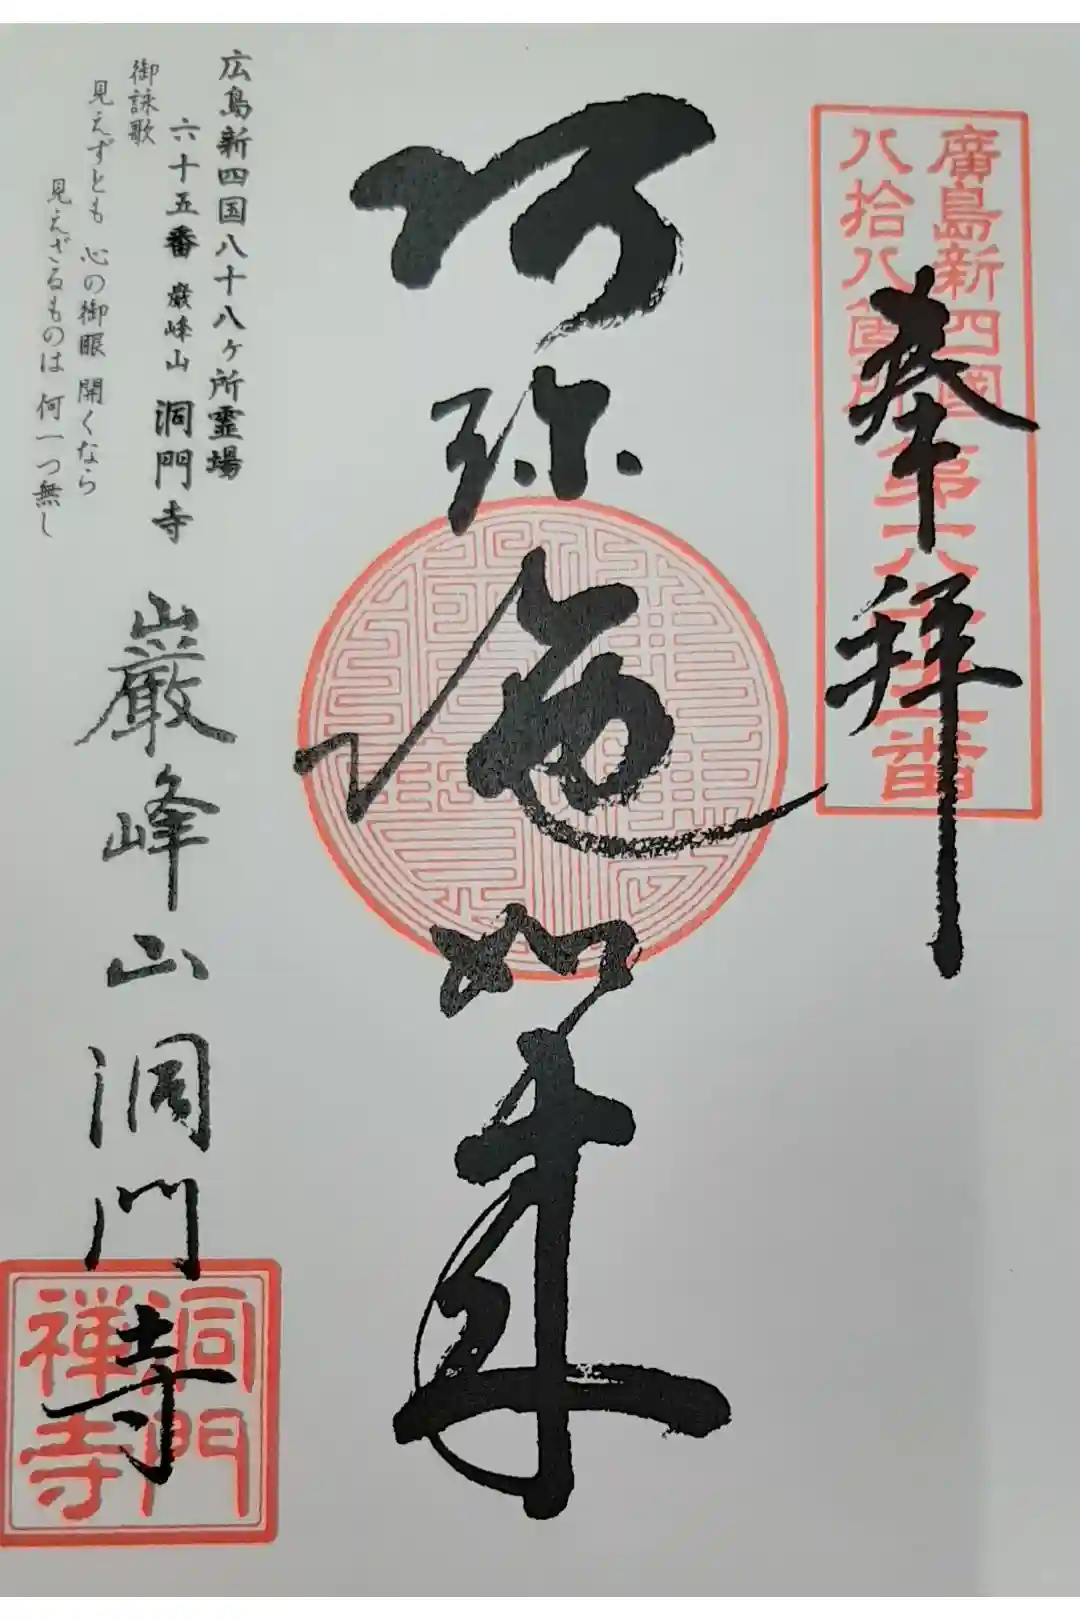 廣島新四國
八拾八箇所
第六十五番
奉拝
阿弥陀如来
広島新四国八十八ヶ所霊場
六十五番 巌峰山 洞門寺
御詠歌
見えずとも 心の御眼 開くなら
見えざるものは 何一つ無し
巌峰山洞門寺
洞門
禅寺